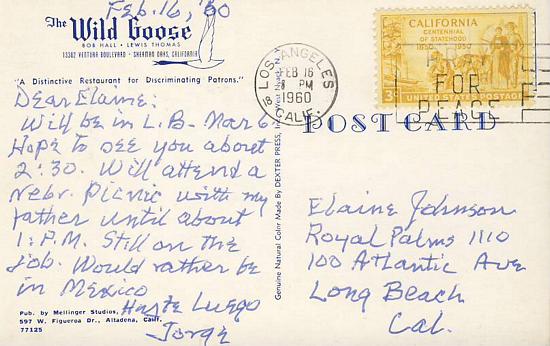 Feb. 16, '60
The Wild Goose
BOB HALL • LEWIS THOMAS
13562 VENTURA BOULEVARD • SHERMAN OAKS, CALIFORNIA
"A Distinctive Restaurant for Discriminating Patrons."
Dear Elaine:
Will be in L.B. Mar 6
Hope to see you about
2:30. Will attend a
Nebr. Picnic with my
father until about
1: P.M. Still on the
job. Would rather be
in Mexico
Haste Luego
Jorge
Pub. by Mellinger Studios,
597 W. Figueroa Dr., Altadena, Calif.
77125
Genuine Natural Color Made By DEXTER PRESS, Inc. West Nyack, N.Y.
LOS ANGELES
CALIF.
FEB 16
8 PM
1960
PRAY
FOR
PEACE
CALIFORNIA
CENTENNIAL
OF STATEHOOD
1850 1950
3¢ UNITED STATES POSTAGE
POST CARD
Elaine Johnson
Royal Palms 1110
100 Atlantic Ave
Long Beach
Cal.